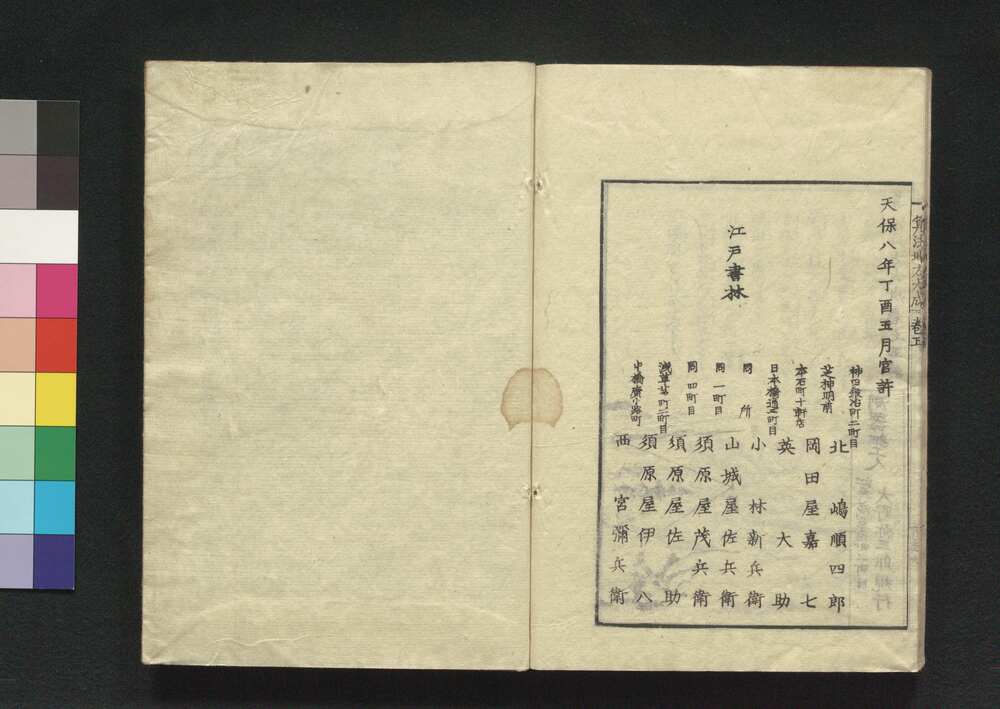 算法地方大成 巻五
天保八年丁酉五月官許
江戸書林
神田鍛冶町二町目 北嶋順四郎
芝神明前 岡田屋嘉七
本石町十軒店 英大助
日本橋通二町目
同所 小林新兵衛
同一町目 山城屋佐兵衛
同四町目 須原屋茂兵衛
浅草茅町二町目 須原屋佐助
中橋廣小路町 須原屋伊八
西宮彌兵衛